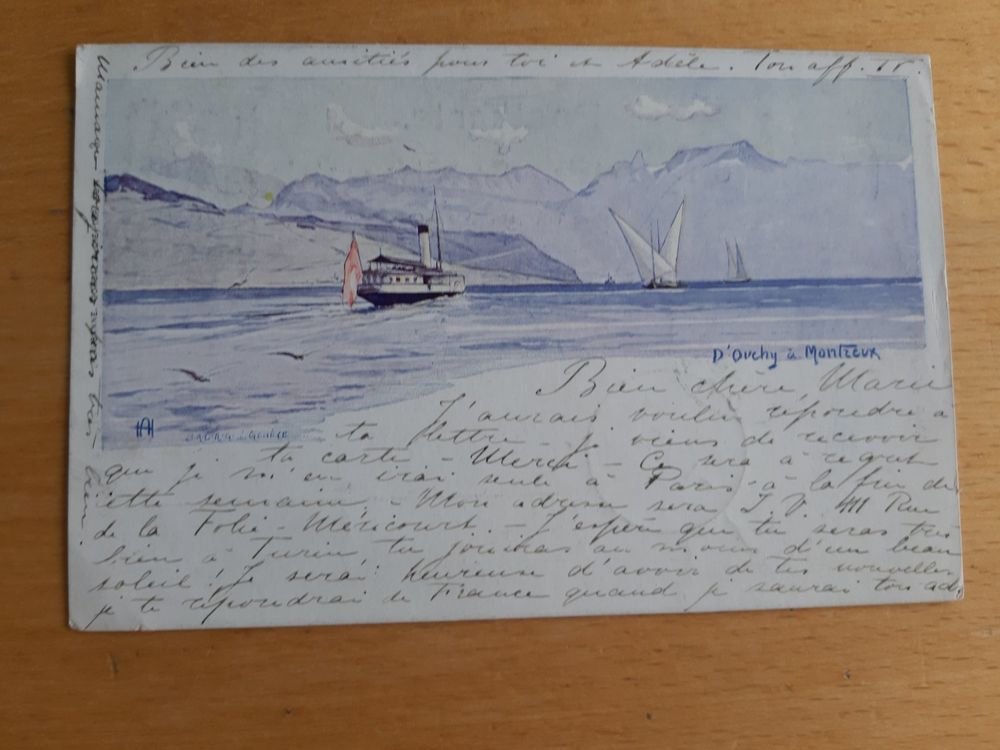 Bien des amitiés pour toi et Adèle. Ton aff.
D'Ouchy à Montreux
Bien chère Marie
J'aurais voulu répondre à
ta lettre - je viens de recevoir
ta carte - Merci - Ce sera à regret
que je m'en irai seule à Paris à la fin de
cette semaine - Mon adresse sera J. V. 411 Rue
de la Folie - Méricourt. - J'espère que tu seras très
bien à Turin tu jouiras au moins d'un beau
soleil! Je serai heureuse d'avoir de tes nouvelles
je te répondrai de France quand je saurai ton ad.
Maman
bien.